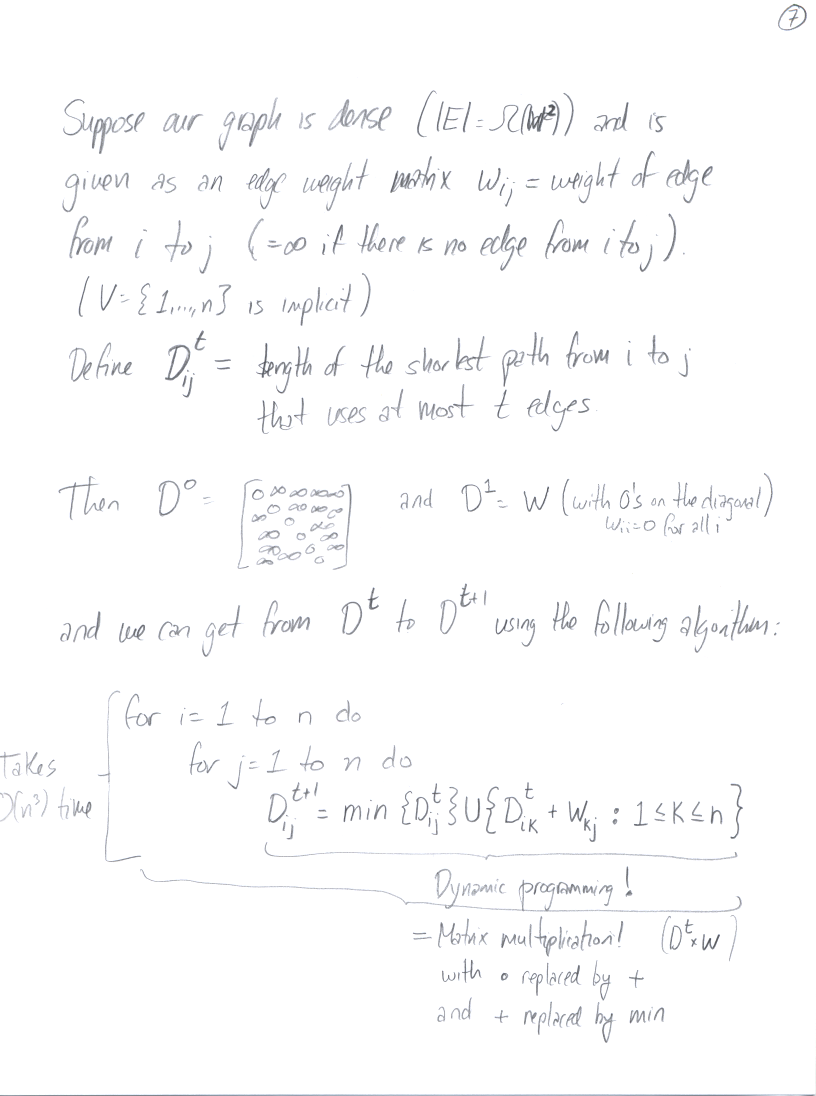 7
Suppose our graph is dense (|E| = Ω(n²)) and is
given as an edge weight matrix Wij = weight of edge
from i to j (=∞ if there is no edge from i to j).
(V={1,...,n} is implicit)
Define D^t_ij = length of the shortest path from i to j
that uses at most t edges.
Then D⁰ = [0 ∞ ∞ ∞ ∞ ∞ and D¹ = W (with 0's on the diagonal)
∞ 0 ∞ ∞ ∞ ∞ Wii=0 for all i
∞ ∞ 0 ∞ ∞ ∞
∞ ∞ ∞ 0 ∞ ∞
∞ ∞ ∞ ∞ 0 ∞
∞ ∞ ∞ ∞ ∞ 0]
and we can get from D^t to D^t+1 using the following algorithm:
for i = 1 to n do
takes for j = 1 to n do
O(n³) time D^t+1_ij = min {D^t_ij} U {D^t_ik + Wkj : 1≤k≤n}
Dynamic programming!
= Matrix multiplication! (D^t × W)
with • replaced by +
and + replaced by min